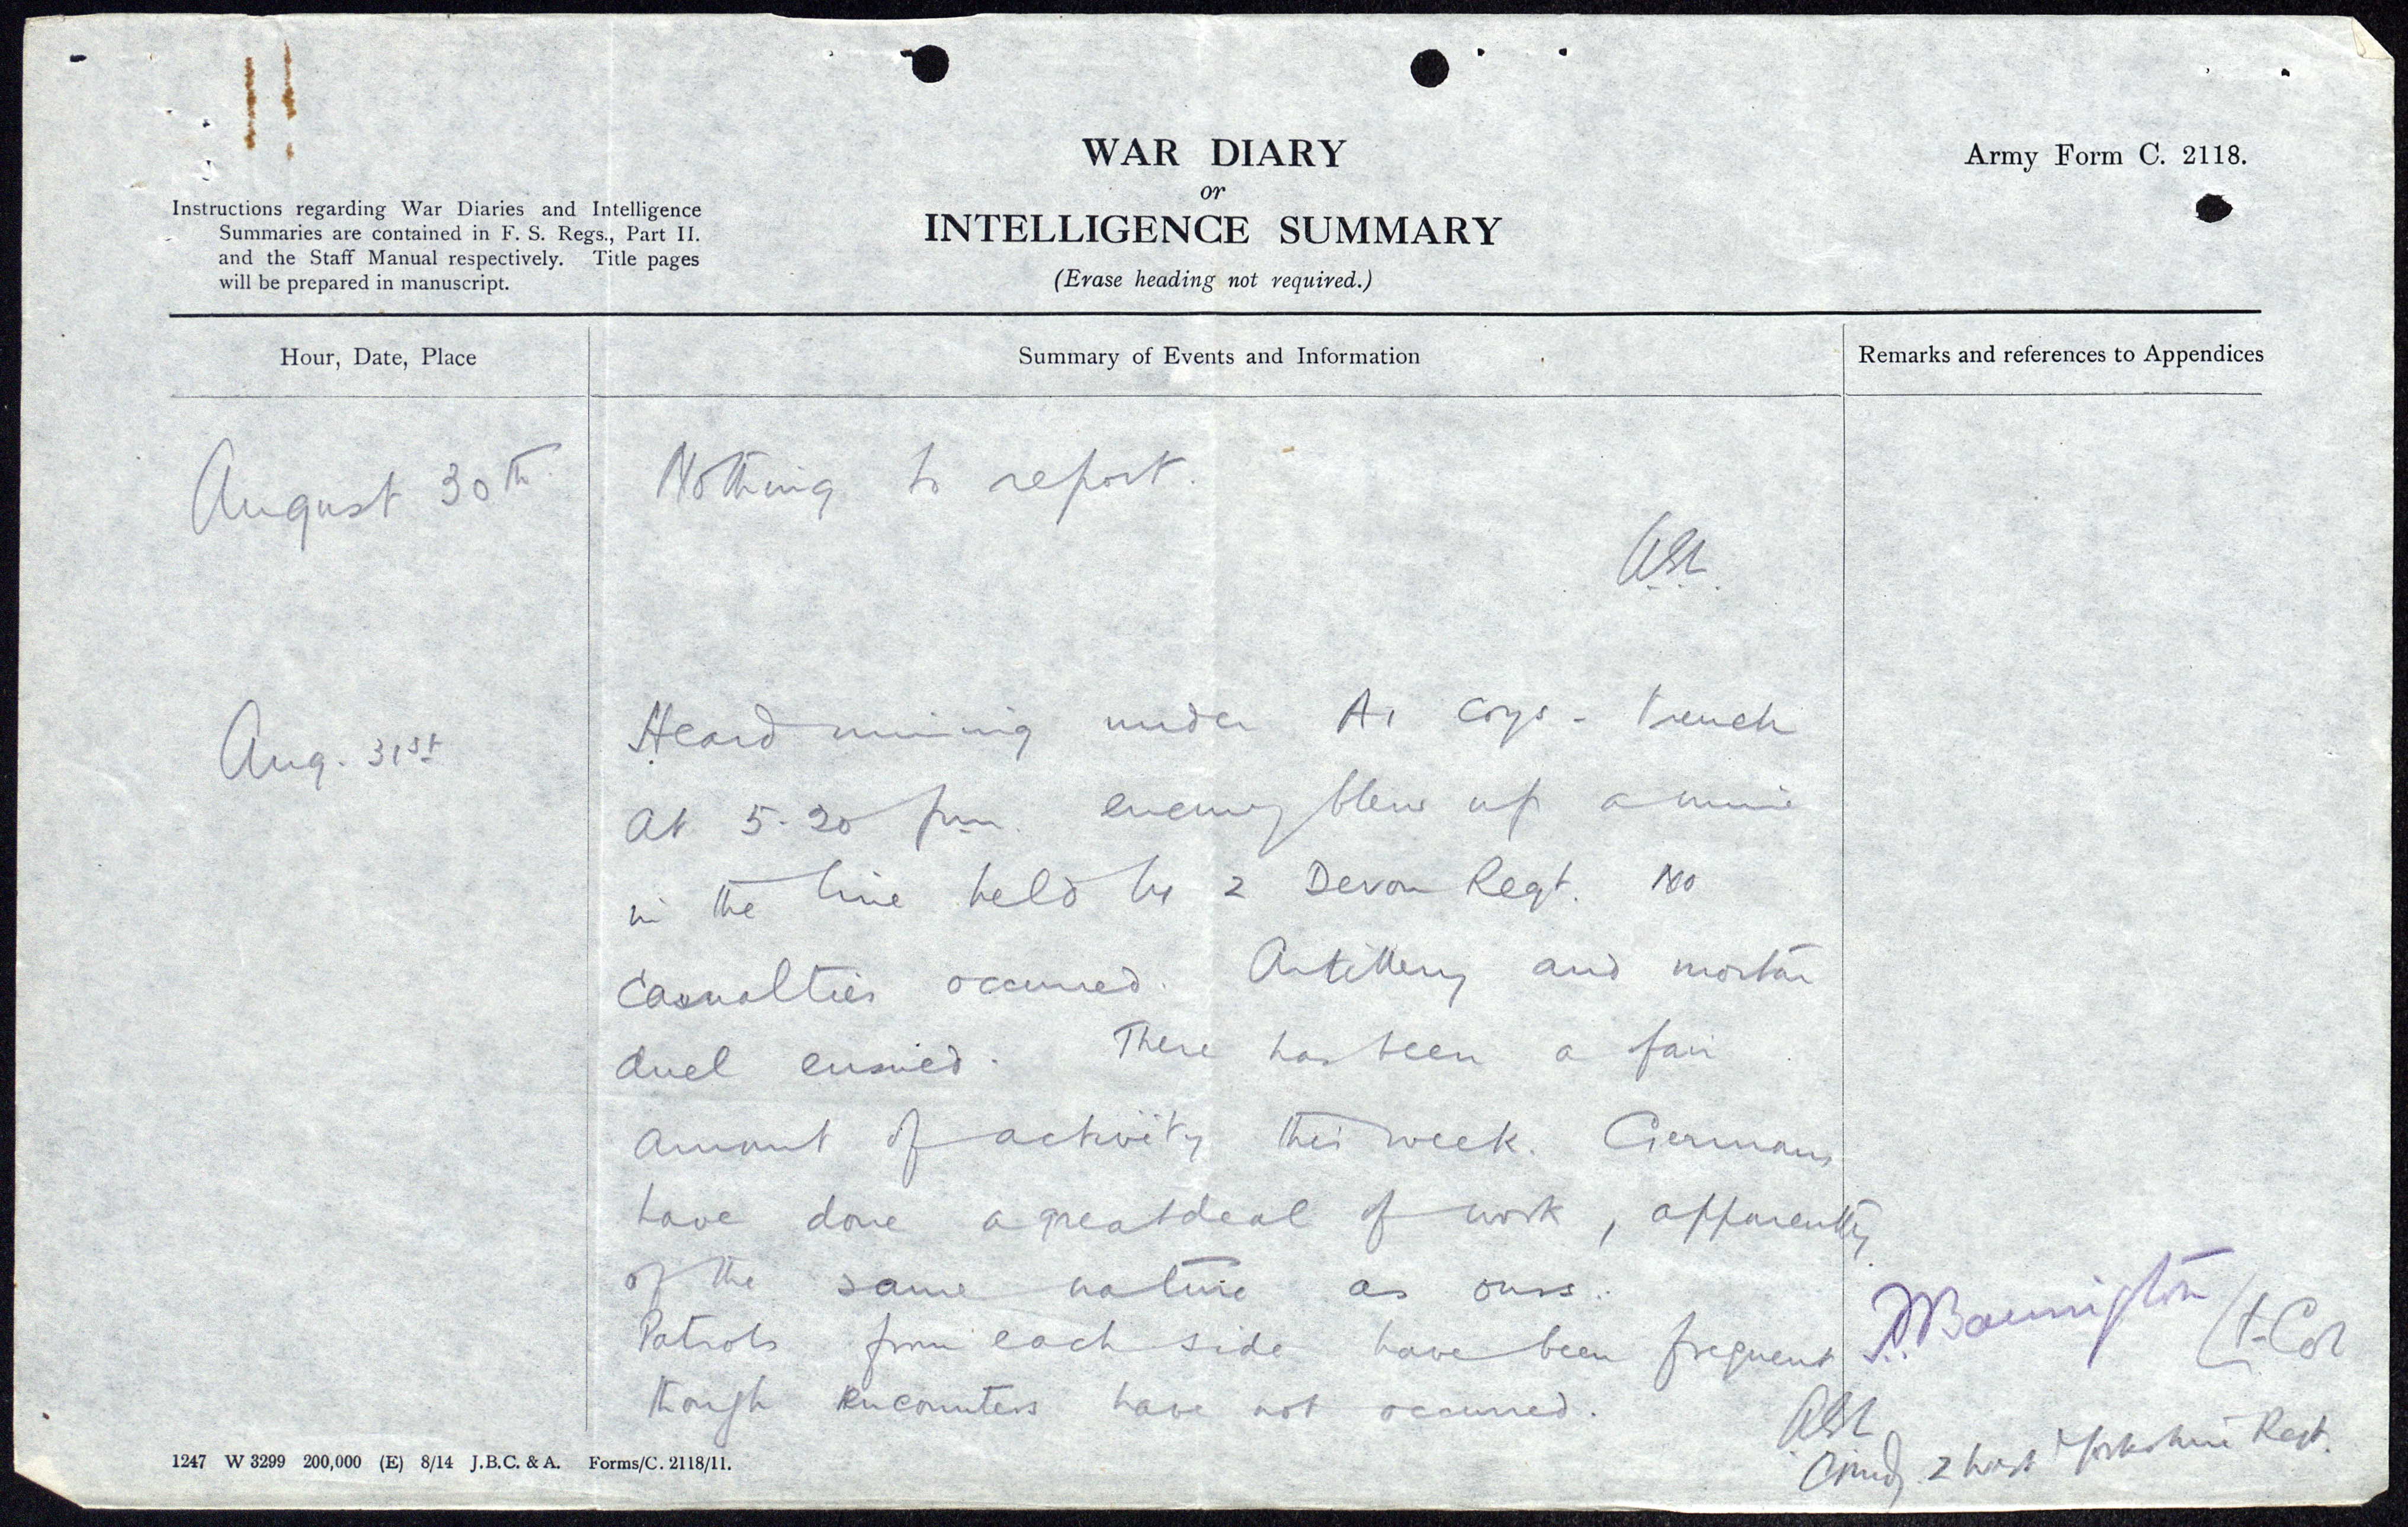 WAR DIARY
or
INTELLIGENCE SUMMARY
(Erase heading not required.)
Army Form C. 2118.
Instructions regarding War Diaries and Intelligence
Summaries are contained in F. S. Regs., Part II.
and the Staff Manual respectively. Title pages
will be prepared in manuscript.
Hour, Date, Place
Summary of Events and Information
Remarks and references to Appendices
August 30th
Nothing to report.
Aug. 31st
Heard mining under A1 Coys - trench
At 5.20 pm. enemy blew up a mine
in the line held by 2 Devon Regt. No
casualties occurred. Artillery and mortar
duel ensued. There has been a fair
amount of activity this week. Germans
have done a great deal of work, apparently
of the same nature as ours.
Patrols from each side have been frequent
though encounters have not occurred.
Lt-Col
Cmdg. 2 West Yorkshire Regt.
1247 W 3299 200,000 (E) 8/14 J.B.C. & A. Forms/C. 2118/11.